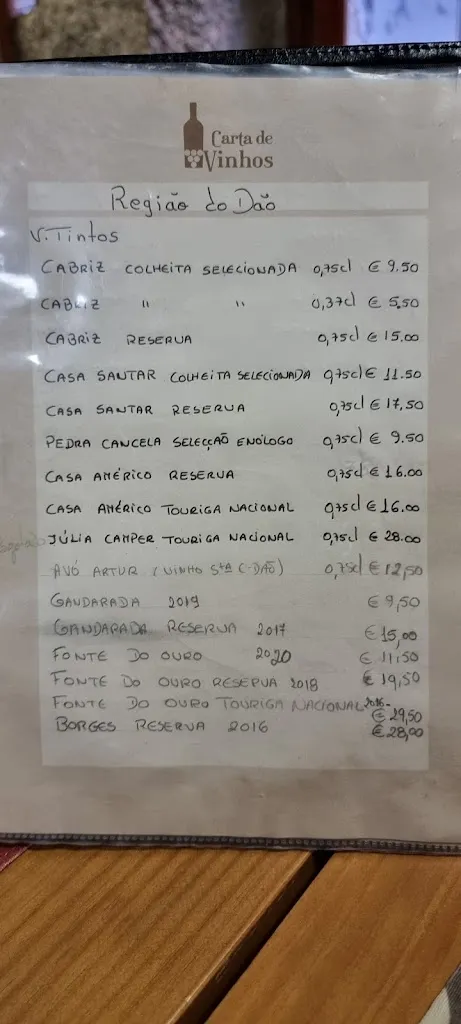 Carta de
Vinhos
Região do Dão
V. Tintos
CABRIZ COLHEITA SELECIONADA 0,75cl € 9.50
CABRIZ " " 0,37cl € 5,50
CABRIZ RESERVA 0,75cl € 15.00
CASA SANTAR COLHEITA SELECIONADA 0,75cl € 11.50
CASA SANTAR RESERVA 0,75cl € 17,50
PEDRA CANCELA SELECÇÃO ENÓLOGO 0,75cl € 9.50
CASA AMÉRICO RESERVA 0,75cl € 16.00
CASA AMÉRICO TOURIGA NACIONAL 0,75cl € 16.00
JÚLIA CAMPER TOURIGA NACIONAL 0,75cl € 28.00
AVÓ ARTUR (VINHO STª C-DÃO) 0,75cl € 12,50
GANDARADA 2019 € 9,50
GANDARADA RESERVA 2017 € 15,00
FONTE DO OURO 2020 € 11.50
FONTE DO OURO RESERVA 2018 € 19,50
FONTE DO OURO TOURIGA NACIONAL 2016-
€ 29,50
BORGES RESERVA 2016 € 28,00